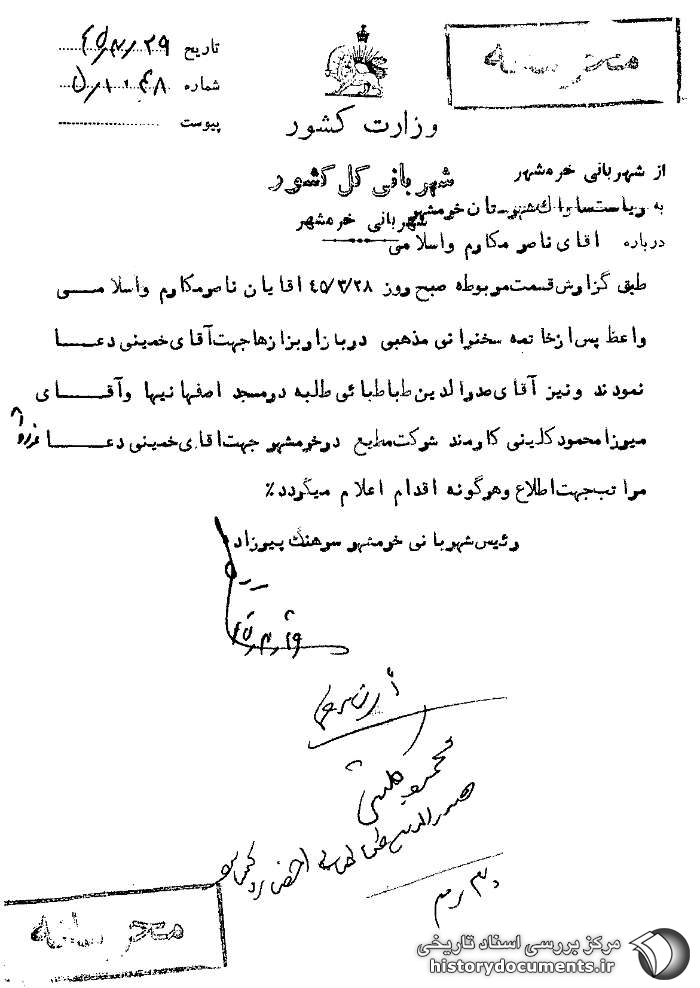 محرمانه
تاریخ ۴۵/۳/۲۹
شماره ۵/۱۰۴۸
پیوست
وزارت کشور
شهربانی کل کشور
از شهربانی خرمشهر
به ریاست ساواک شهرستان خرمشهر
شهربانی خرمشهر
درباره اقای ناصر مکارم واسلامی
طبق گزارش قسمت مربوطه صبح روز ۴۵/۳/۲۸ اقایان ناصر مکارم واسلامی
واعظ پس از خاتمه سخنرانی مذهبی در بازار بزازها جهت آقای خمینی دعا
نمودند ونیز آقای صدرالدین طباطبائی طلبه در مسجد اصفهانیها وآقای
میرزا محمود کلینی کارمند شرکت مطیع در خرمشهر جهت اقای خمینی دعا
مراتب جهت اطلاع وهرگونه اقدام اعلام میگردد٪
رئیس شهربانی خرمشهر سرهنگ پیرزاد
۴۵/۳/۲۹
محمود
صدرالدین طباطبایی احضار
۳۰/۳
محرمانه
مرکز بررسی اسناد تاریخی
historydocuments.ir